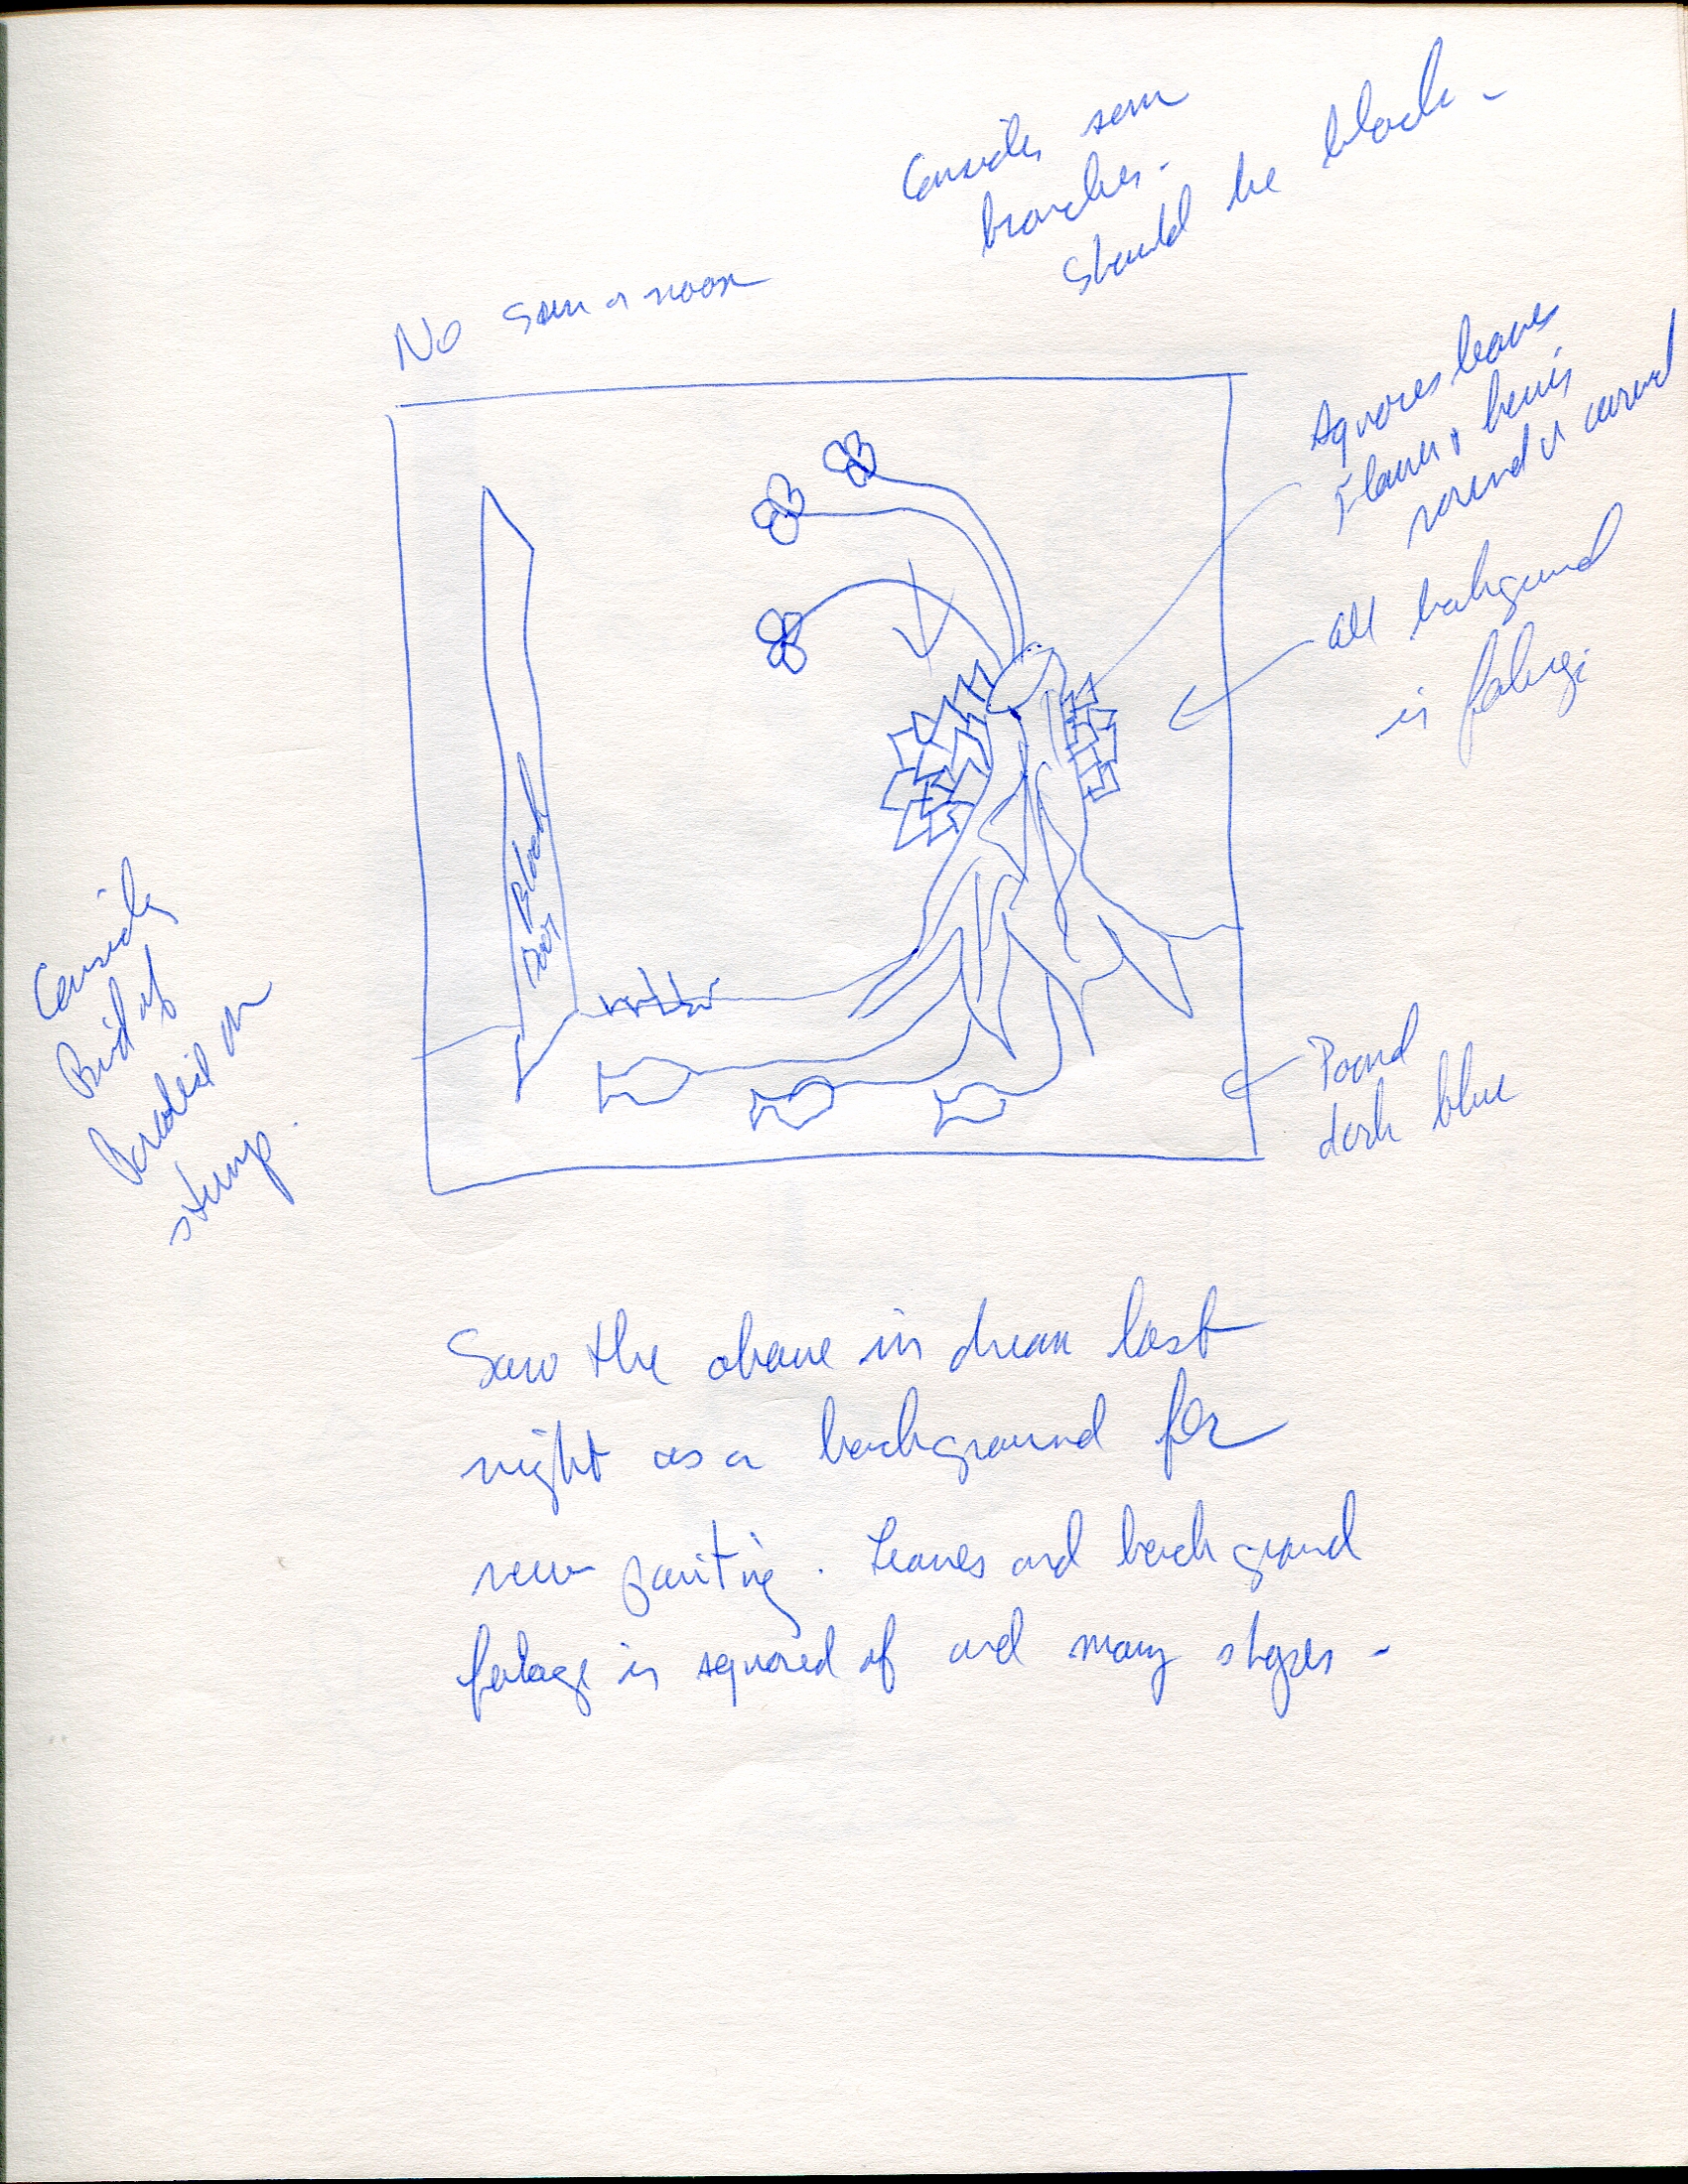 Consider som
branches.
Should be black -
No sun or moon
Squares leaves
Flowers & berris
round & curved
all background
in folage
Black
Consider
Bird of
Paradise on
stump.
Poond
dark blue
Saw the above in dream last
night as a background for
new painting. Leaves and back ground
folage is squared of and many shapes -